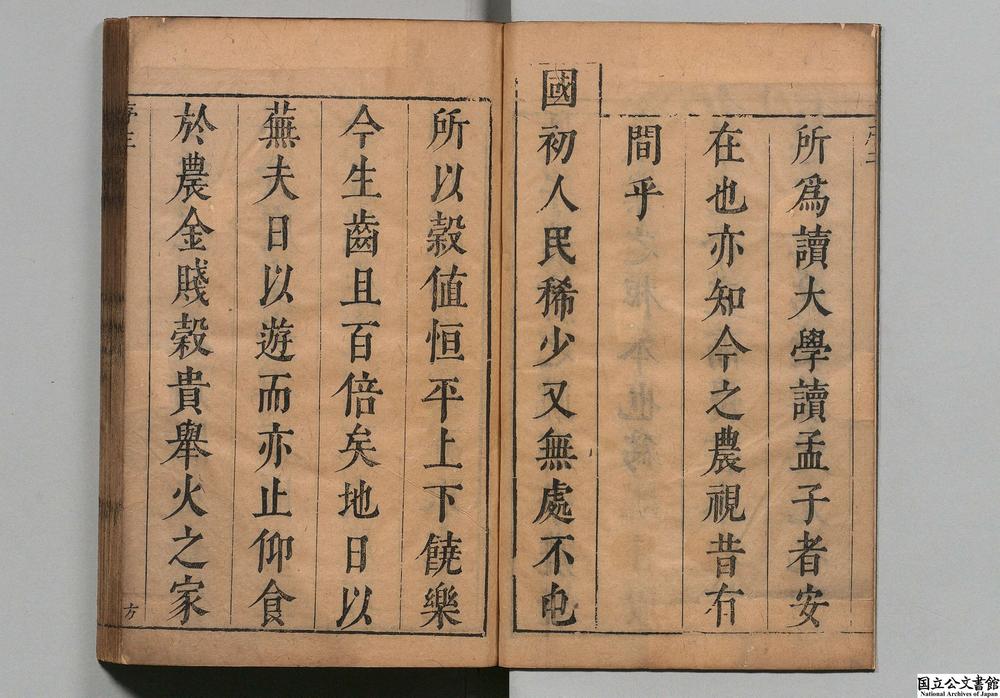 序二
所爲讀大學讀孟子者安
在也亦知今之農視昔有
間乎
國初人民稀少又無處不屯
所以穀值恒平上下饒樂
今生齒且百倍矣地日以
蕪夫日以遊而亦止仰食
於農金賤穀貴舉火之家
序三
方
国立公文書館
National Archives of Japan